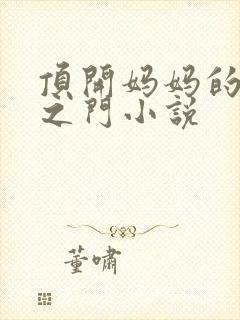 頂開妈妈的
之門小説
董嘯